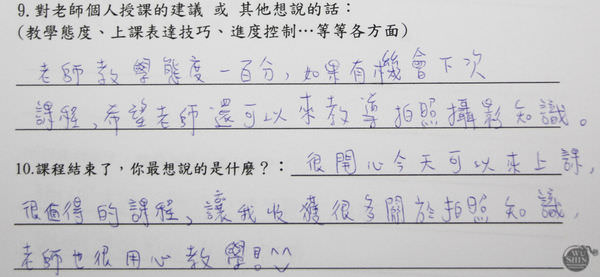 9. 對老師個人授課的建議 或 其他想說的話：
(教學態度、上課表達技巧、進度控制…等等各方面)
老師教學態度一百分，如果有機會下次
課程，希望老師還可以來教導拍照攝影知識。
10.課程結束了，你最想說的是什麼？：很開心今天可以來上課，
很值得的課程，讓我收獲很多關於拍照知識，
老師也很用心教學！^^
WU SHIN